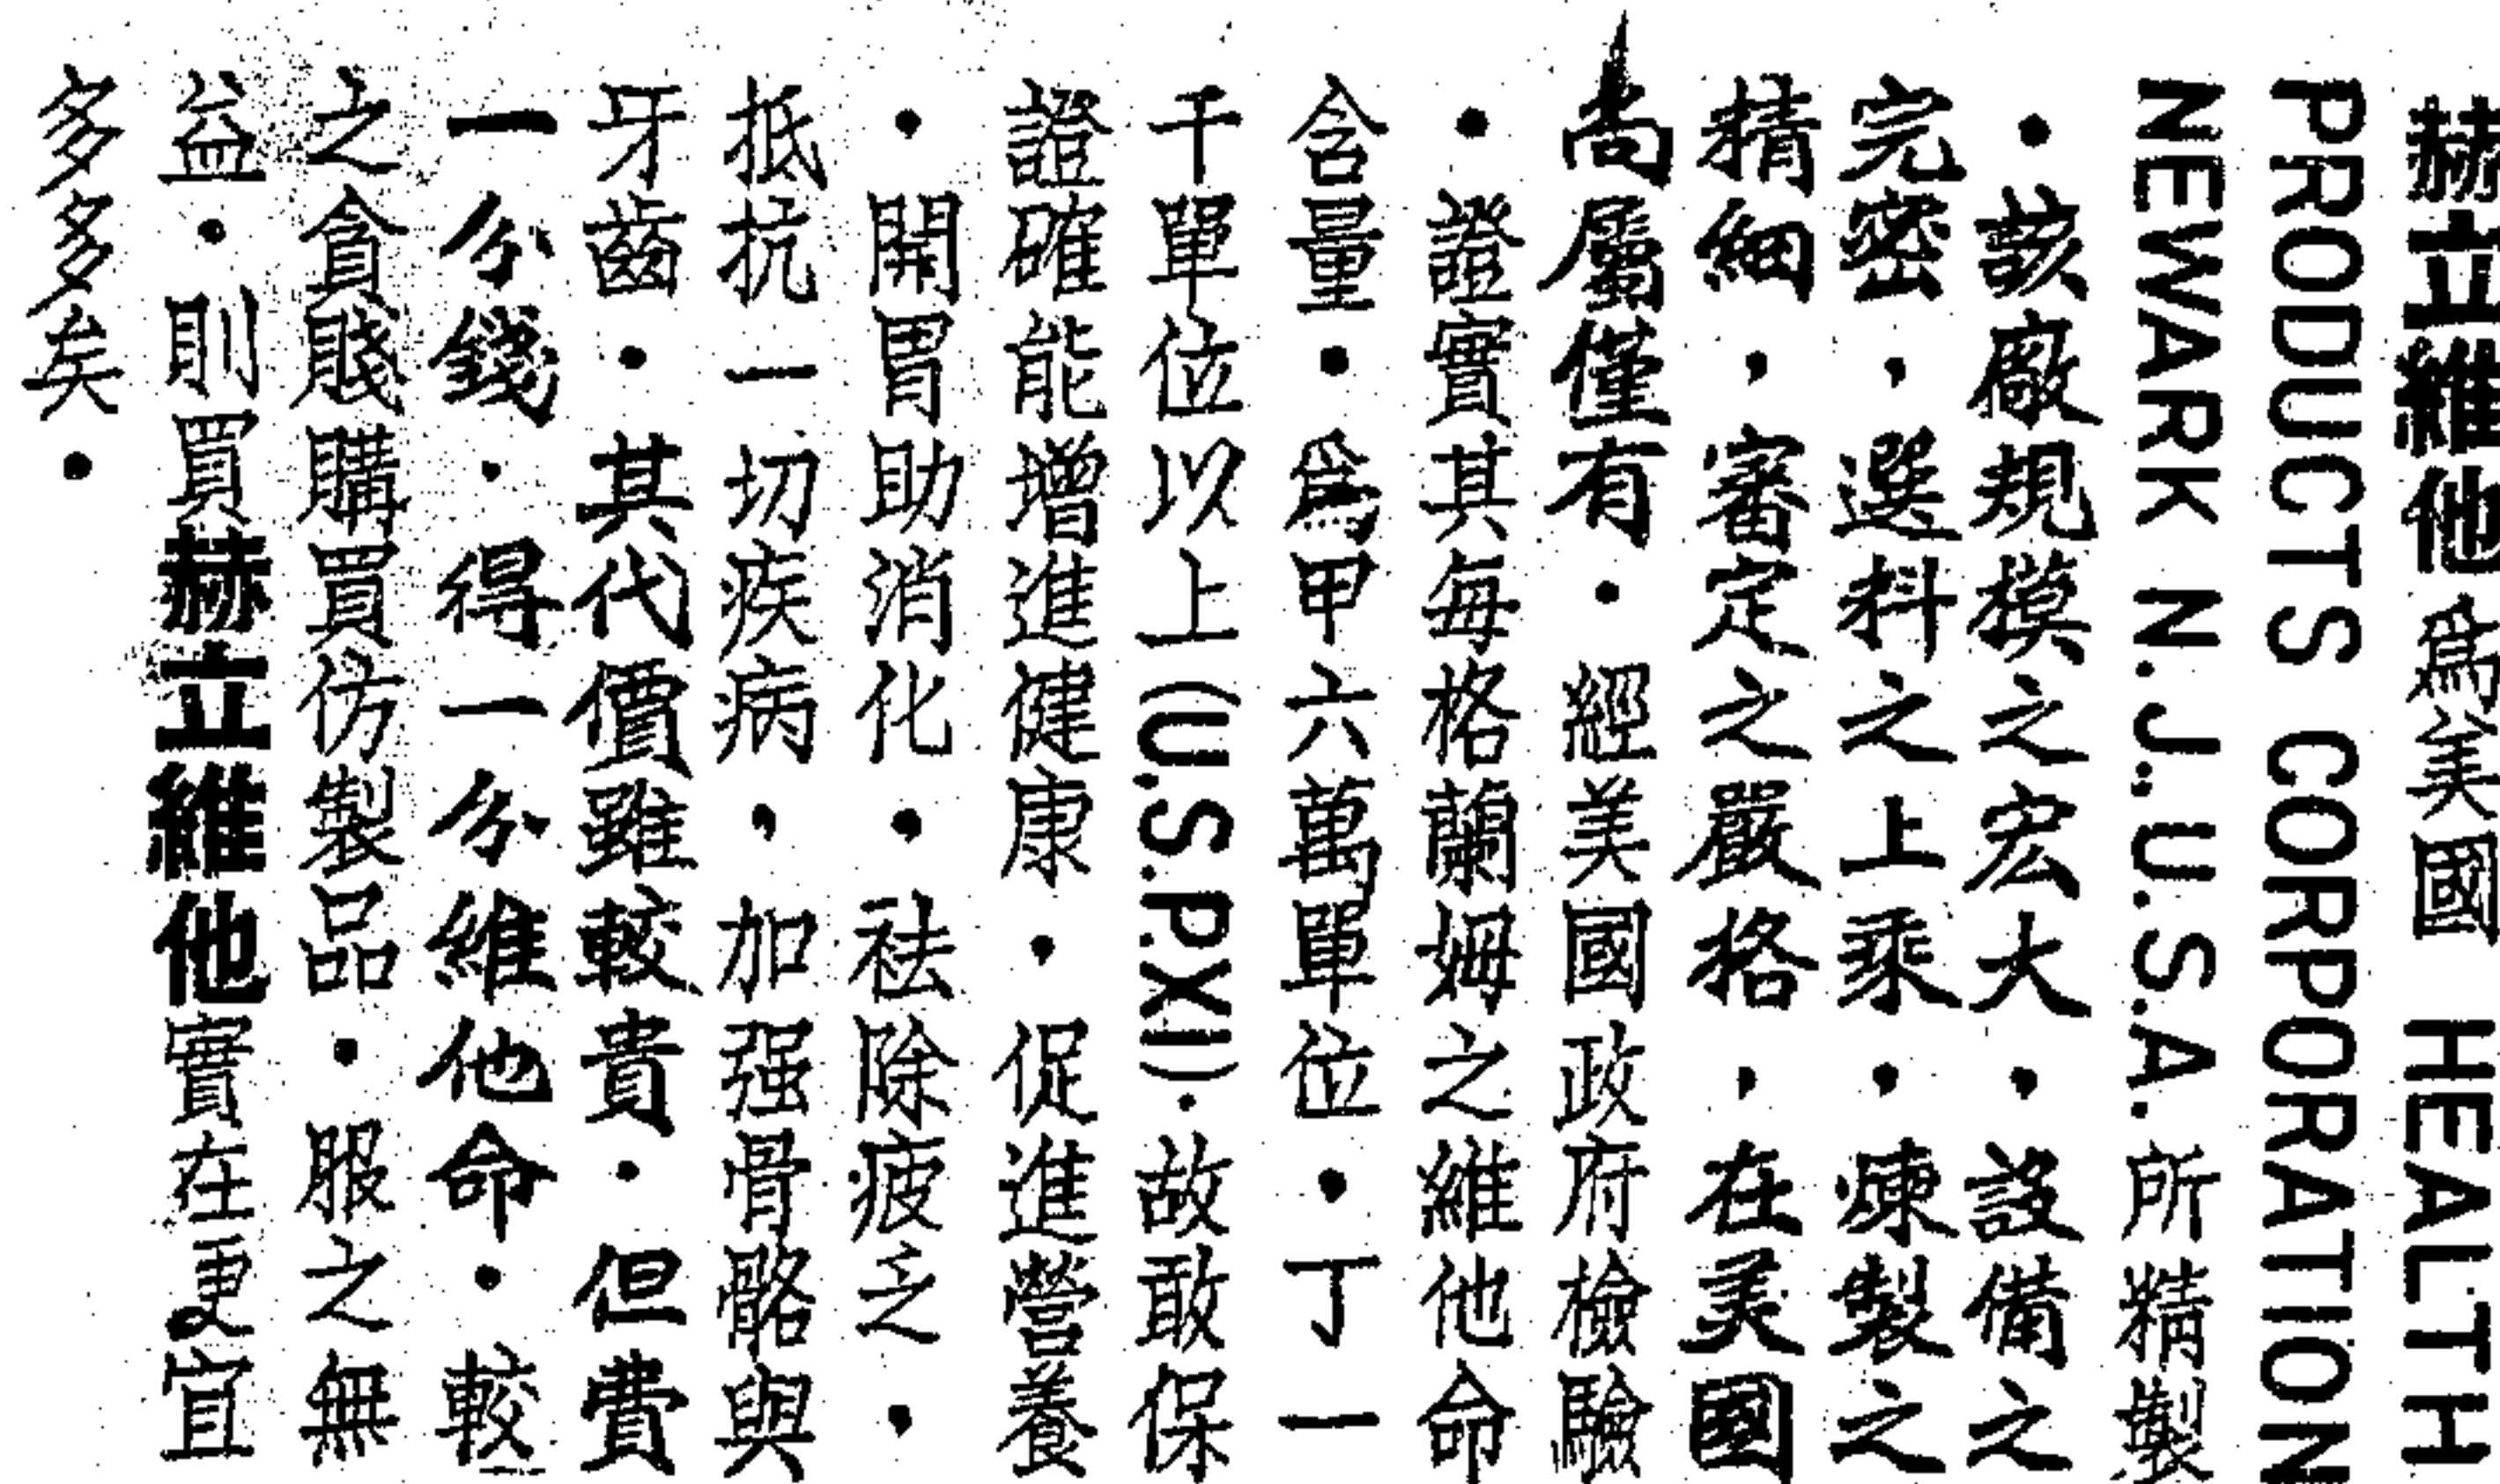 赫立維他為美國 HEALTH
PRODUCTS CORPORATION
NEWARK N.J., U.S.A. 所精製
•該廠規模之宏大•設備之
完密,選料之上乘•煉製之
精細,審定之嚴格,在美國
尚屬僅有•經美國政府檢驗
•證實其每格蘭姆之維他命
含量•為甲六萬單位•丁一
千單位以上(U.S.P.XI)•故敢保
證確能增進健康•促進營養
•開胃助消化•祛除疲乏•
抵抗一切疾病,加强骨骼與
牙齒•其代價雖較貴•但費
一分錢•得一分維他命•較
之貪賤購買仿製品•服之無
益•則買赫立維他實在更宜
多多矣•